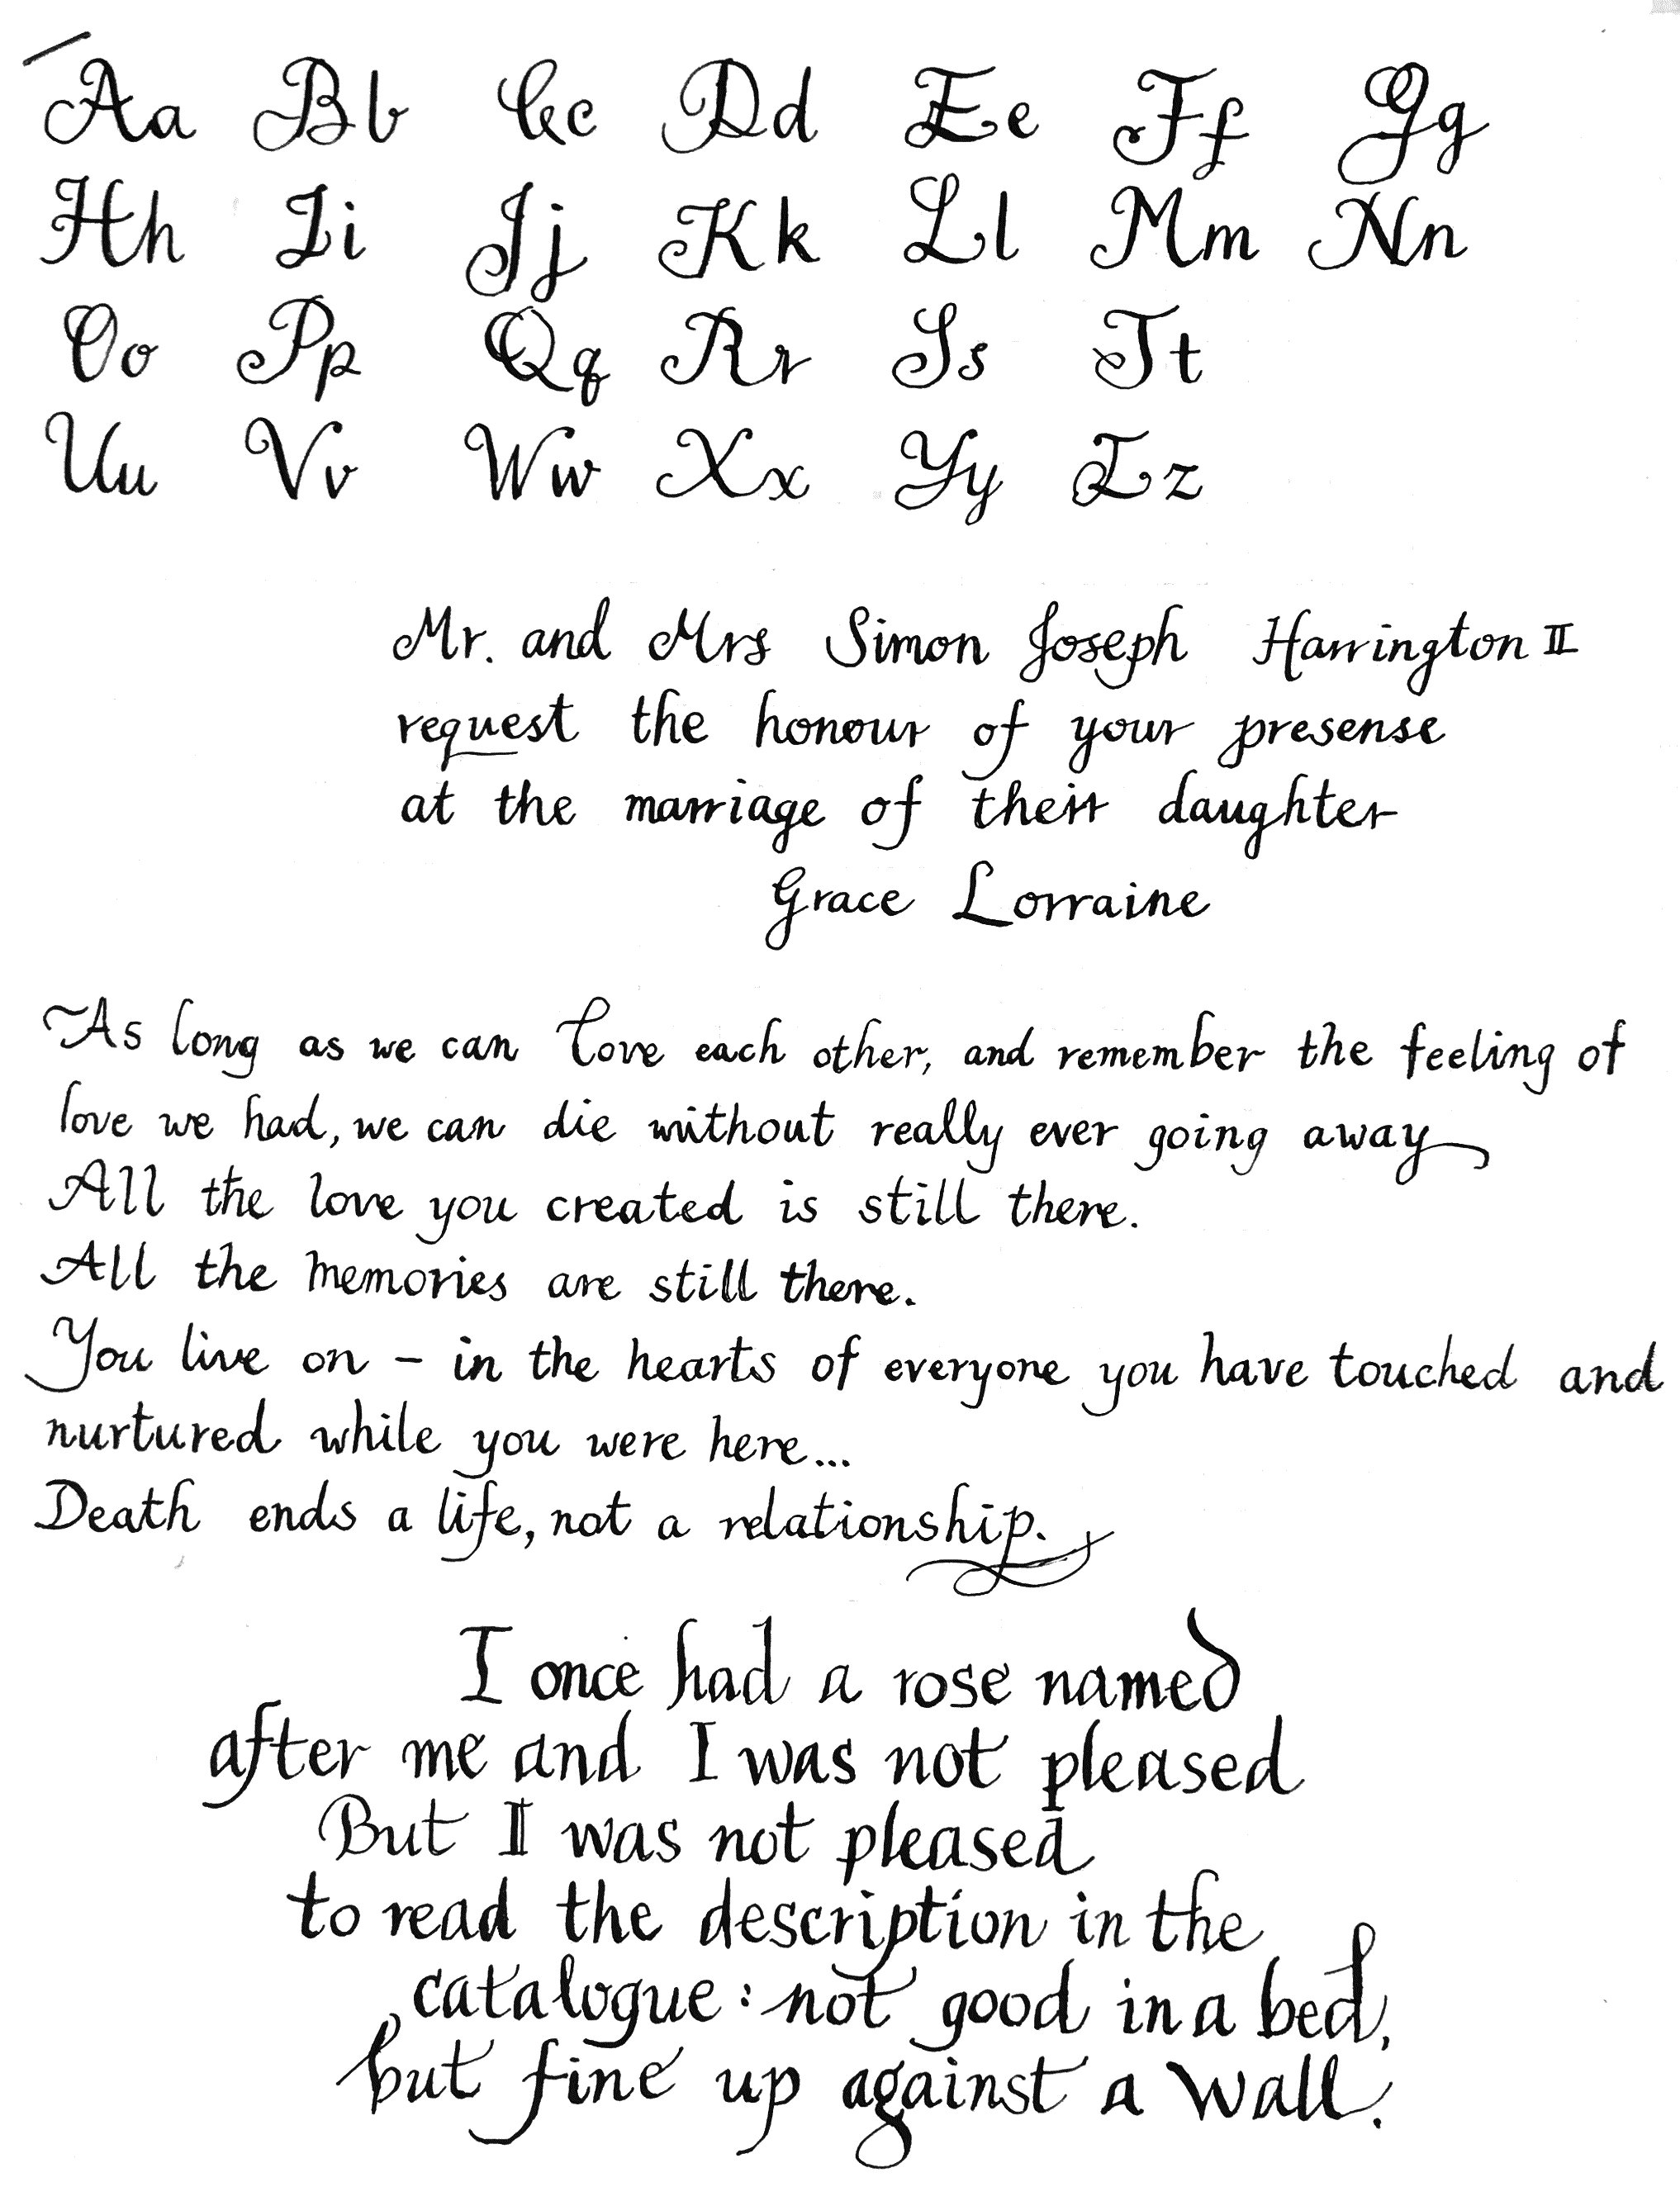 Aa Bb Cc Dd Ee Ff Gg
Hh Ii Jj Kk Ll Mm Nn
Oo Pp Qq Rr Ss Tt
Uu Vv Ww Xx Yy Zz
Mr. and Mrs Simon Joseph Harrington II
request the honour of your presense
at the marriage of their daughter
Grace Lorraine
As long as we can love each other, and remember the feeling of
love we had, we can die without really ever going away
All the love you created is still there.
All the memories are still there.
You live on – in the hearts of everyone you have touched and
nurtured while you were here...
Death ends a life, not a relationship.
I once had a rose named
after me and I was not pleased
But I was not pleased
to read the description in the
catalogue: not good in a bed,
but fine up against a wall.